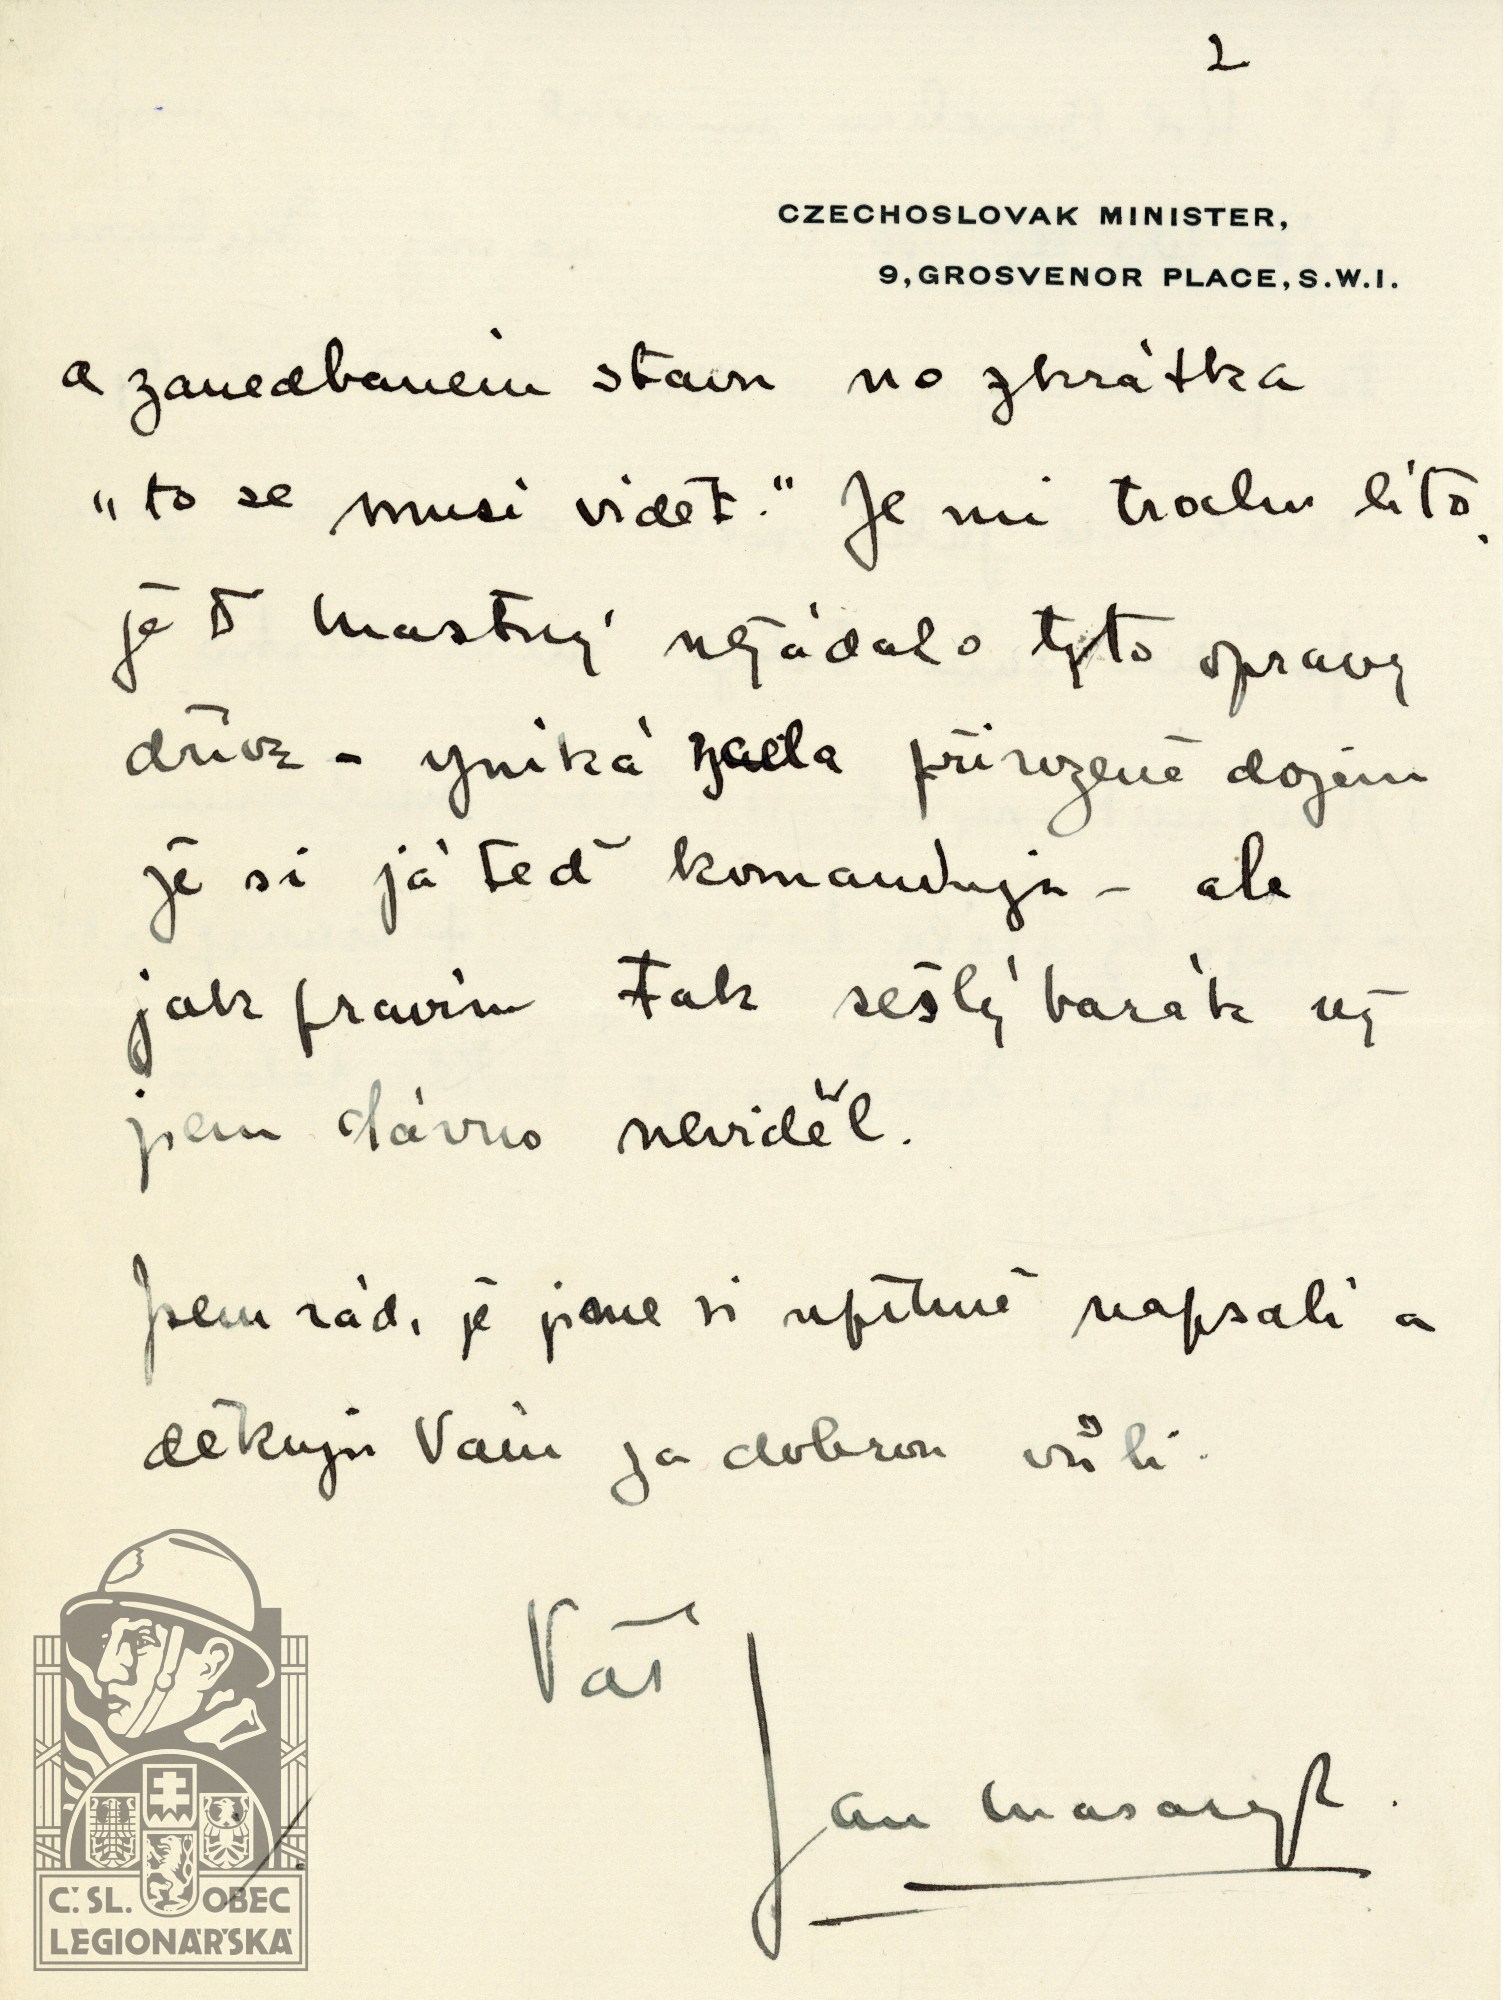 2
CZECHOSLOVAK MINISTER,
9, GROSVENOR PLACE, S.W.1.
a zanedbaném stavu no zkrátka
„to se musí vidět.“ Je mi trochu líto,
že Mastný nežádalo tyto opravy
dříve – vzniká zde přirozeně dojem
že si já teď komanduju – ale
jak pravím tak sešlý barák už
jsem dávno neviděl.
Jsem rád, že jsme si upřímně napsali a
děkuju Vám za dobrou vůli.
Váš
Jan Masaryk.
Č. SL. OBEC
LEGIONÁŘSKÁ